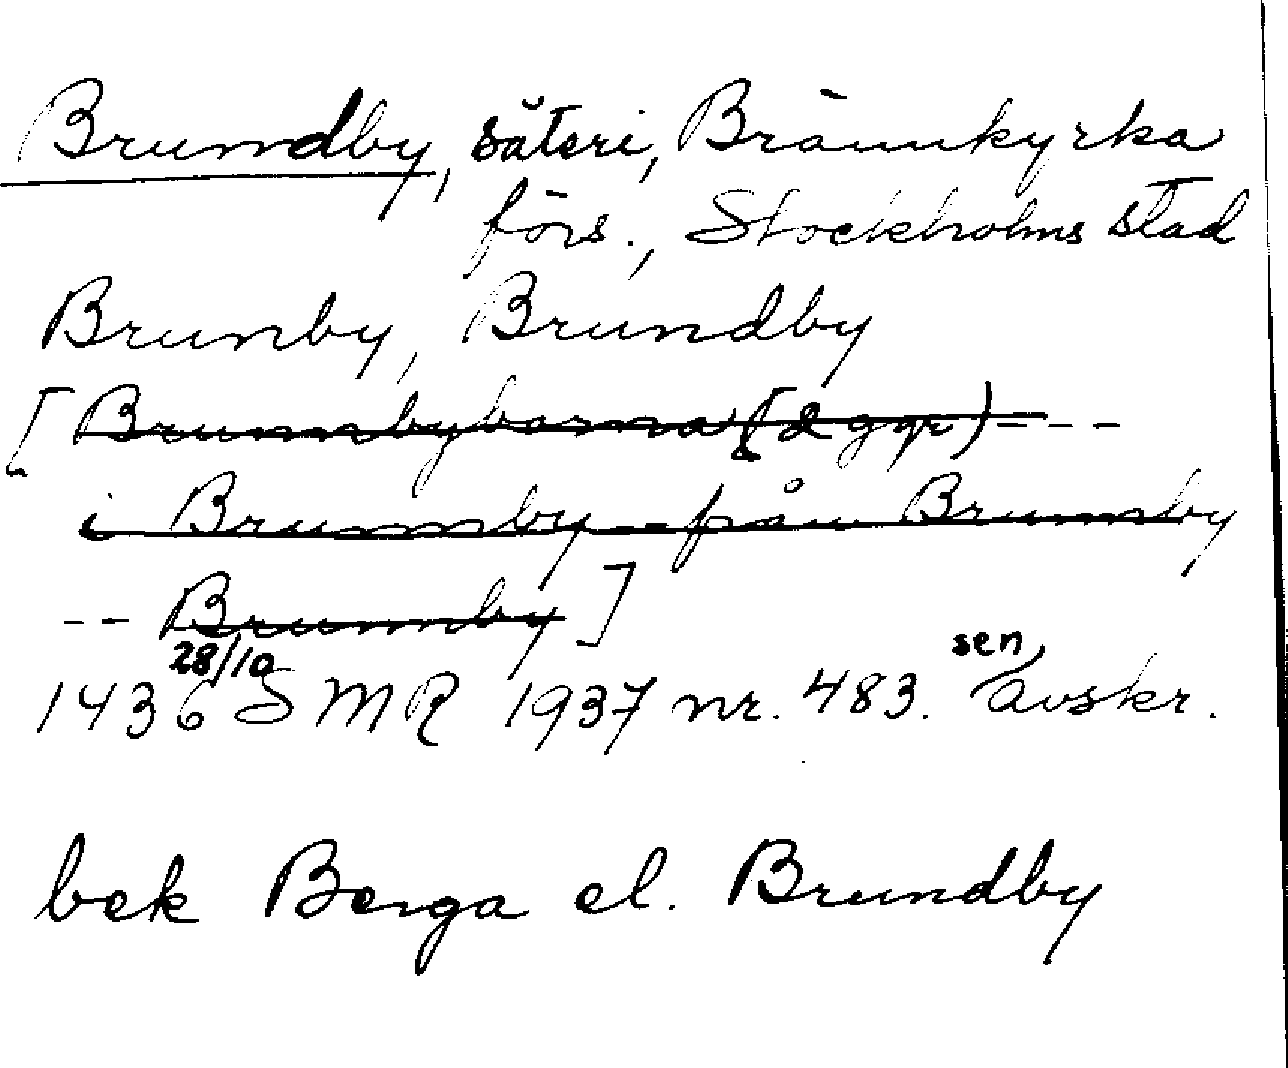 Brundby, säteri, Brännkyrka
förs., Stockholms stad
Brunby, Brundby
[Brunnbybarna (2 ggr) ---
i Brumby -- från Brumby
-- Brumby]
1436 28/10 SMR 1937 nr. 483. sen avskr.
bek Berga el. Brundby